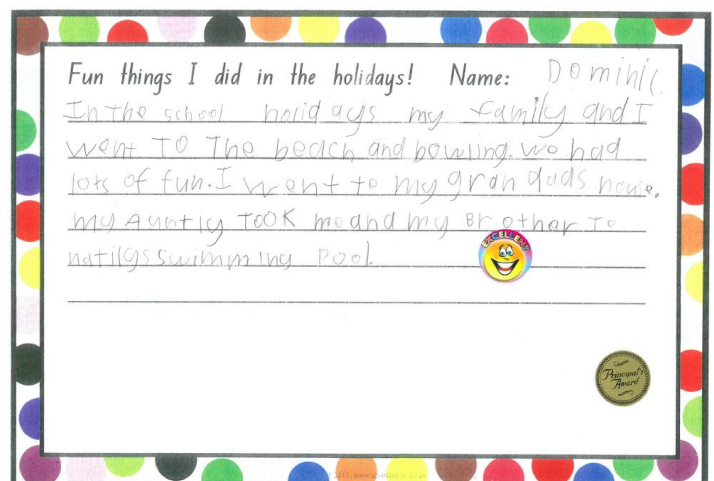 Fun things I did in the holidays! Name: Dominic
In The school holidays my family and I
went To The beach and bowling. we had
lots of fun. I went to my gran dads house.
my Auntly TOOK me and my Brother To
swimming Pool.
EXCELLENT
Principal's Award